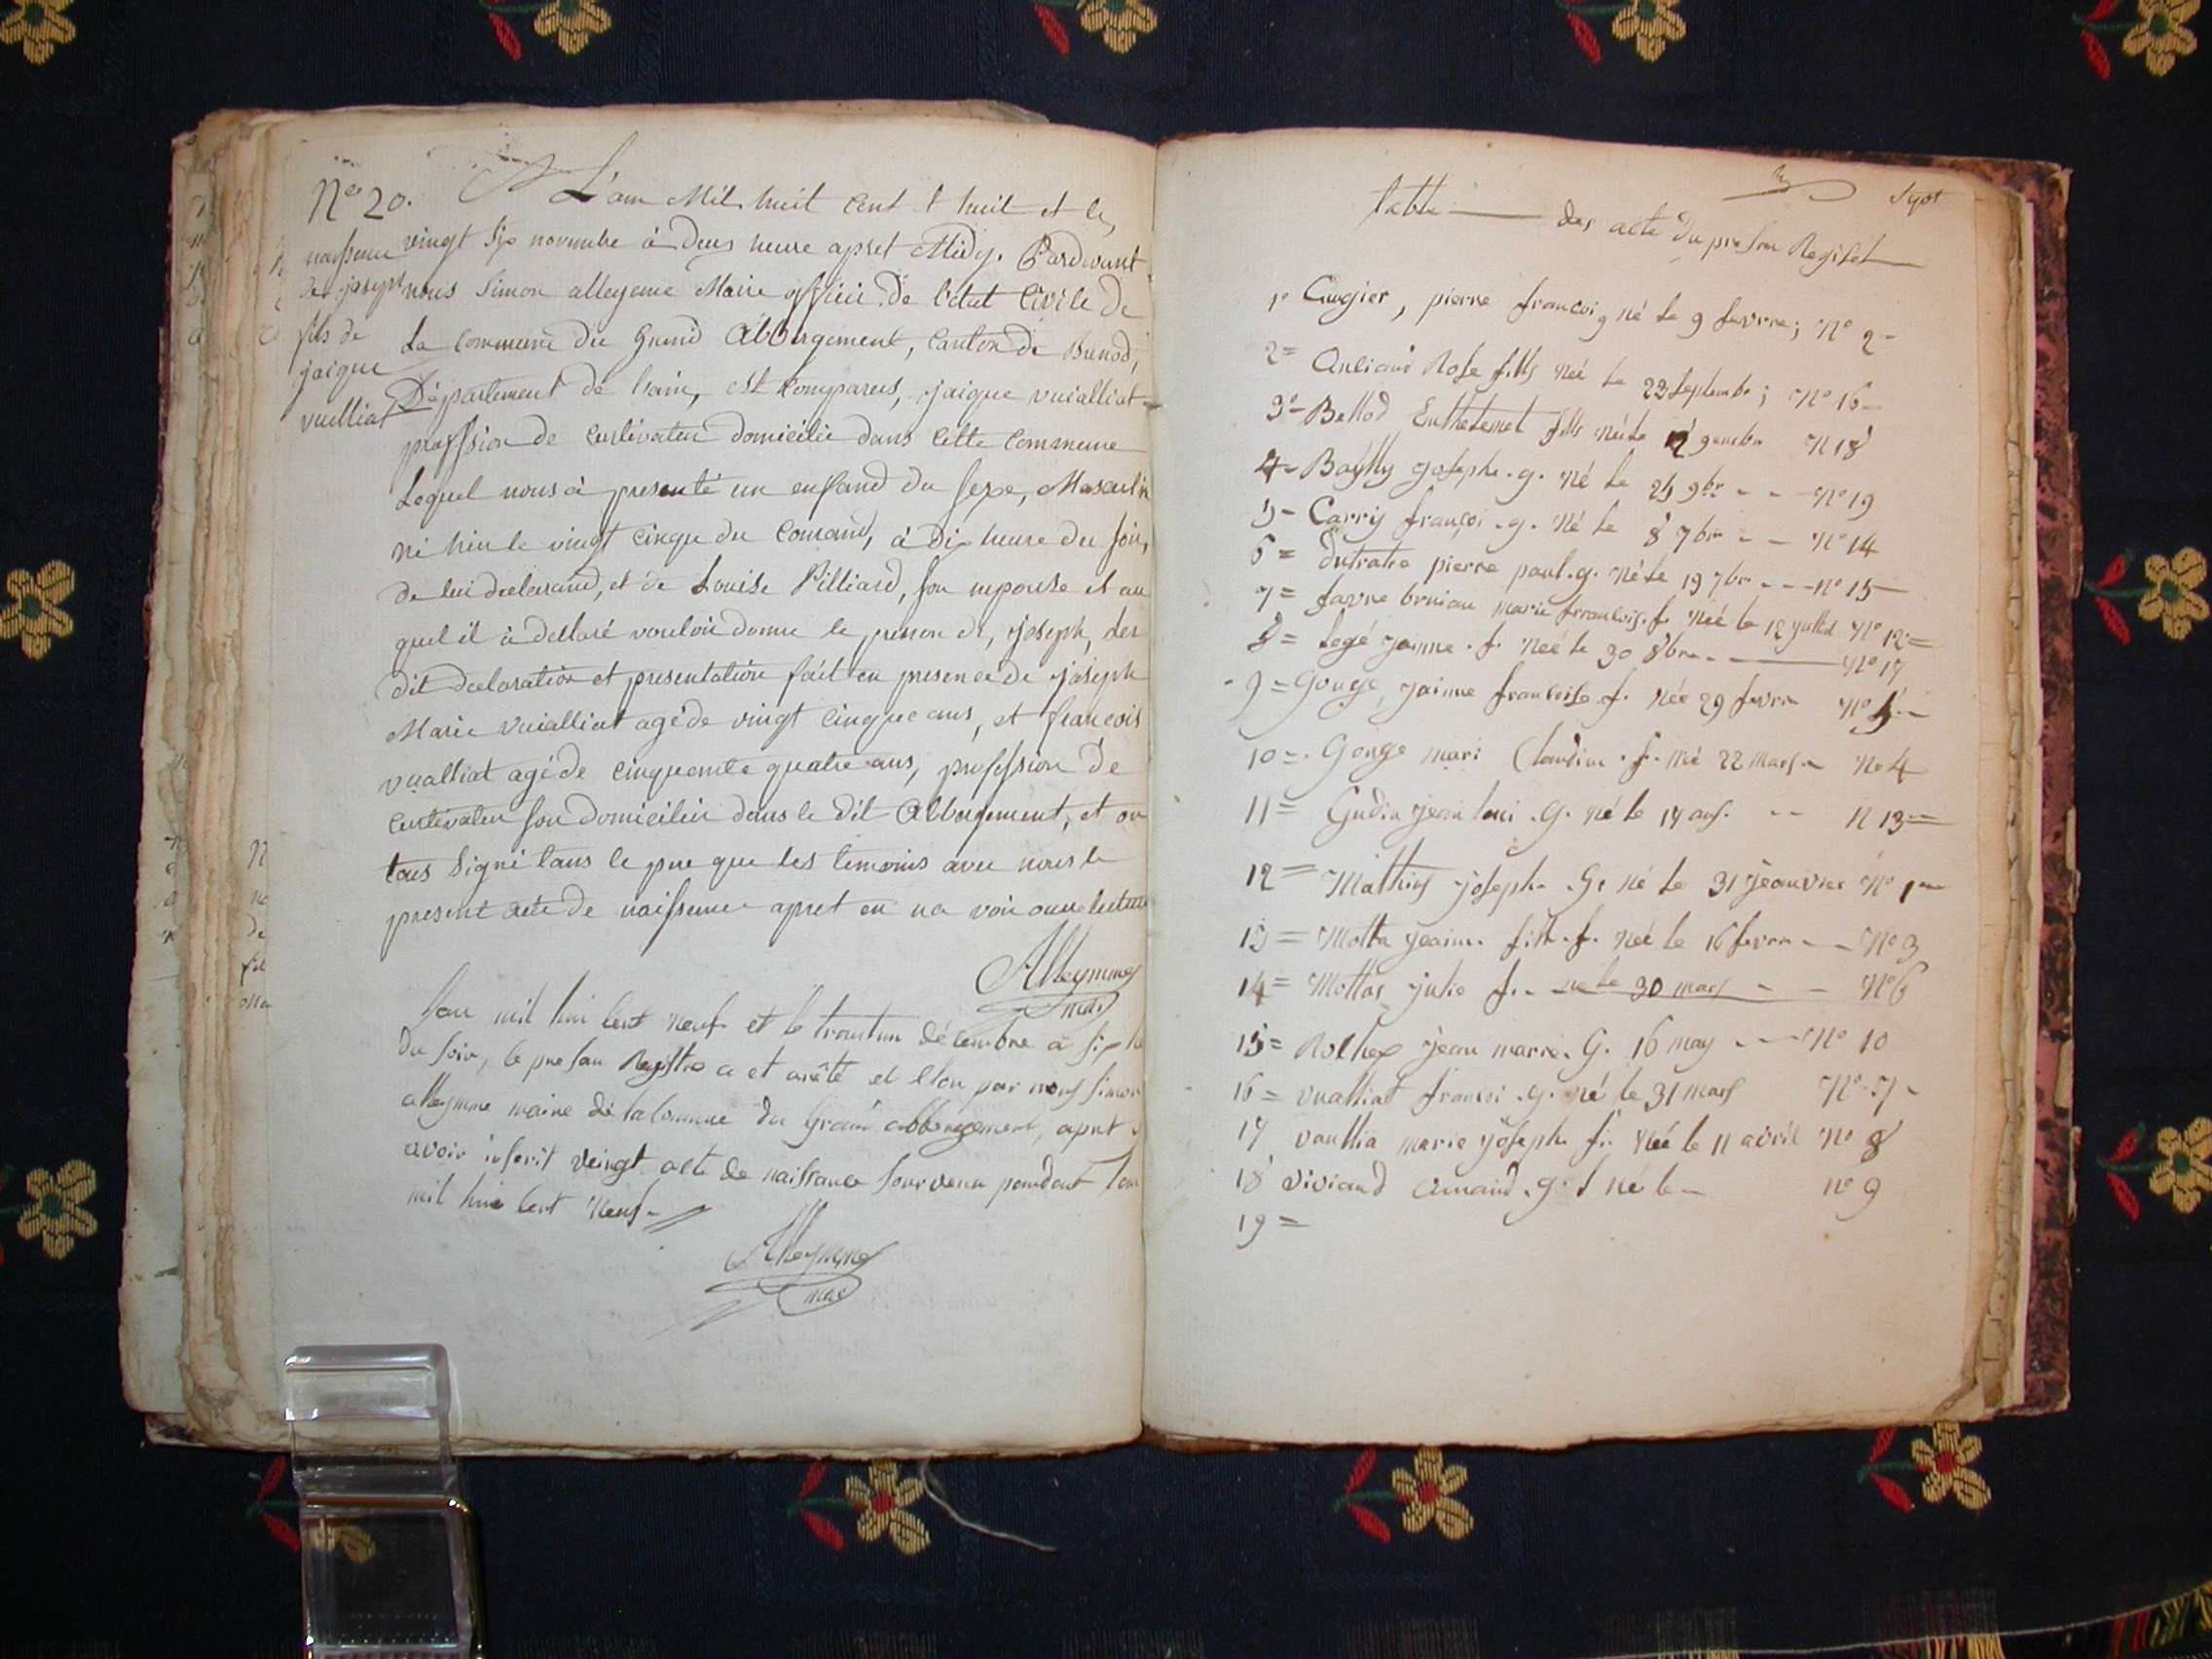 N° 20.
L'an Mil huit cent huit et le
naissance
de joseph
fils de
jaique
vuilliat
vingt six novembre à deux heure apret Midy. Pardevant
nous Simon alleyeme Maire officié de l'état Civile de
La commune du Grand Abbergement, Canton de Brenod,
Département de lain, est comparus, jaique vuialliat
proffsion de cultivateu domicilié dans cette Commune
Lequel nous à presenté un enfand du sexe, Masculin
né hier le vingt cinque du Courand, à dix heure du soir,
de lui declarand, et de Louise Pilliard, son
quel il à declaré vouloir donne le prenon de, joseph, les
dit declaration et presentation fait en presence de joseph
Marie vuialliat agé de vingt cinque ans, et francois
vualliat agé de cinquente quatre ans, profession de
cultivateu domicilié dans le dit Abbergement, et on
tous signé tans le que les temoins avec nous le
present acte de naissance apret en
Alleymme
mai
Lan mil hui cent neuf et le décembre a six
du soir, le presan Registre a et arêté et Clou par nous simon
alleymme maire de la commune du Grand abbergement, apret
avoir inscrit veingt acte de naissance sourvenu pandant lan
mil hui cent neuf
Alleymme
mai
table des acte du presan Registe
1° pierre françoi né le 9 fevrre; N° 2
2 = Rose fills née le 23 septembre; N° 16
3° - Ballod fills née le N 18
4 - Bailly joseph. g. né le 9br N° 19
5 - Carrij françoi. g. né le 8 7br N° 14
6 = Dutratre pierre paul. g. né le 19 7br N° 15
7 = favre bruian marie francois. f. née le 12 N° 12 =
8 = Legé janne. f. née le 30 8bre N° 17
9 = Gouge jainne francoise. f. née 29 fevre N° 5
10 = Gonge mari Claudine. f. née 22 mars N° 4
11 = Gudin jean. G. né le 14 N 13 =
12 = Mathieu joseph. G. né le 31 jeanvier N° 1
13 = Motta jeanne. f. née le 16 fevre N° 3
14 = Mottas julie f. ne le 30 mars N° 6
15 = jean marie. G. 16 may N° 10
16 = vualliat françoi. g. né le 31 mars N° 7
17 vaullia marie joseph f. née le 11 avril N° 8
18 viviand amand. g. né le N° 9
19 =